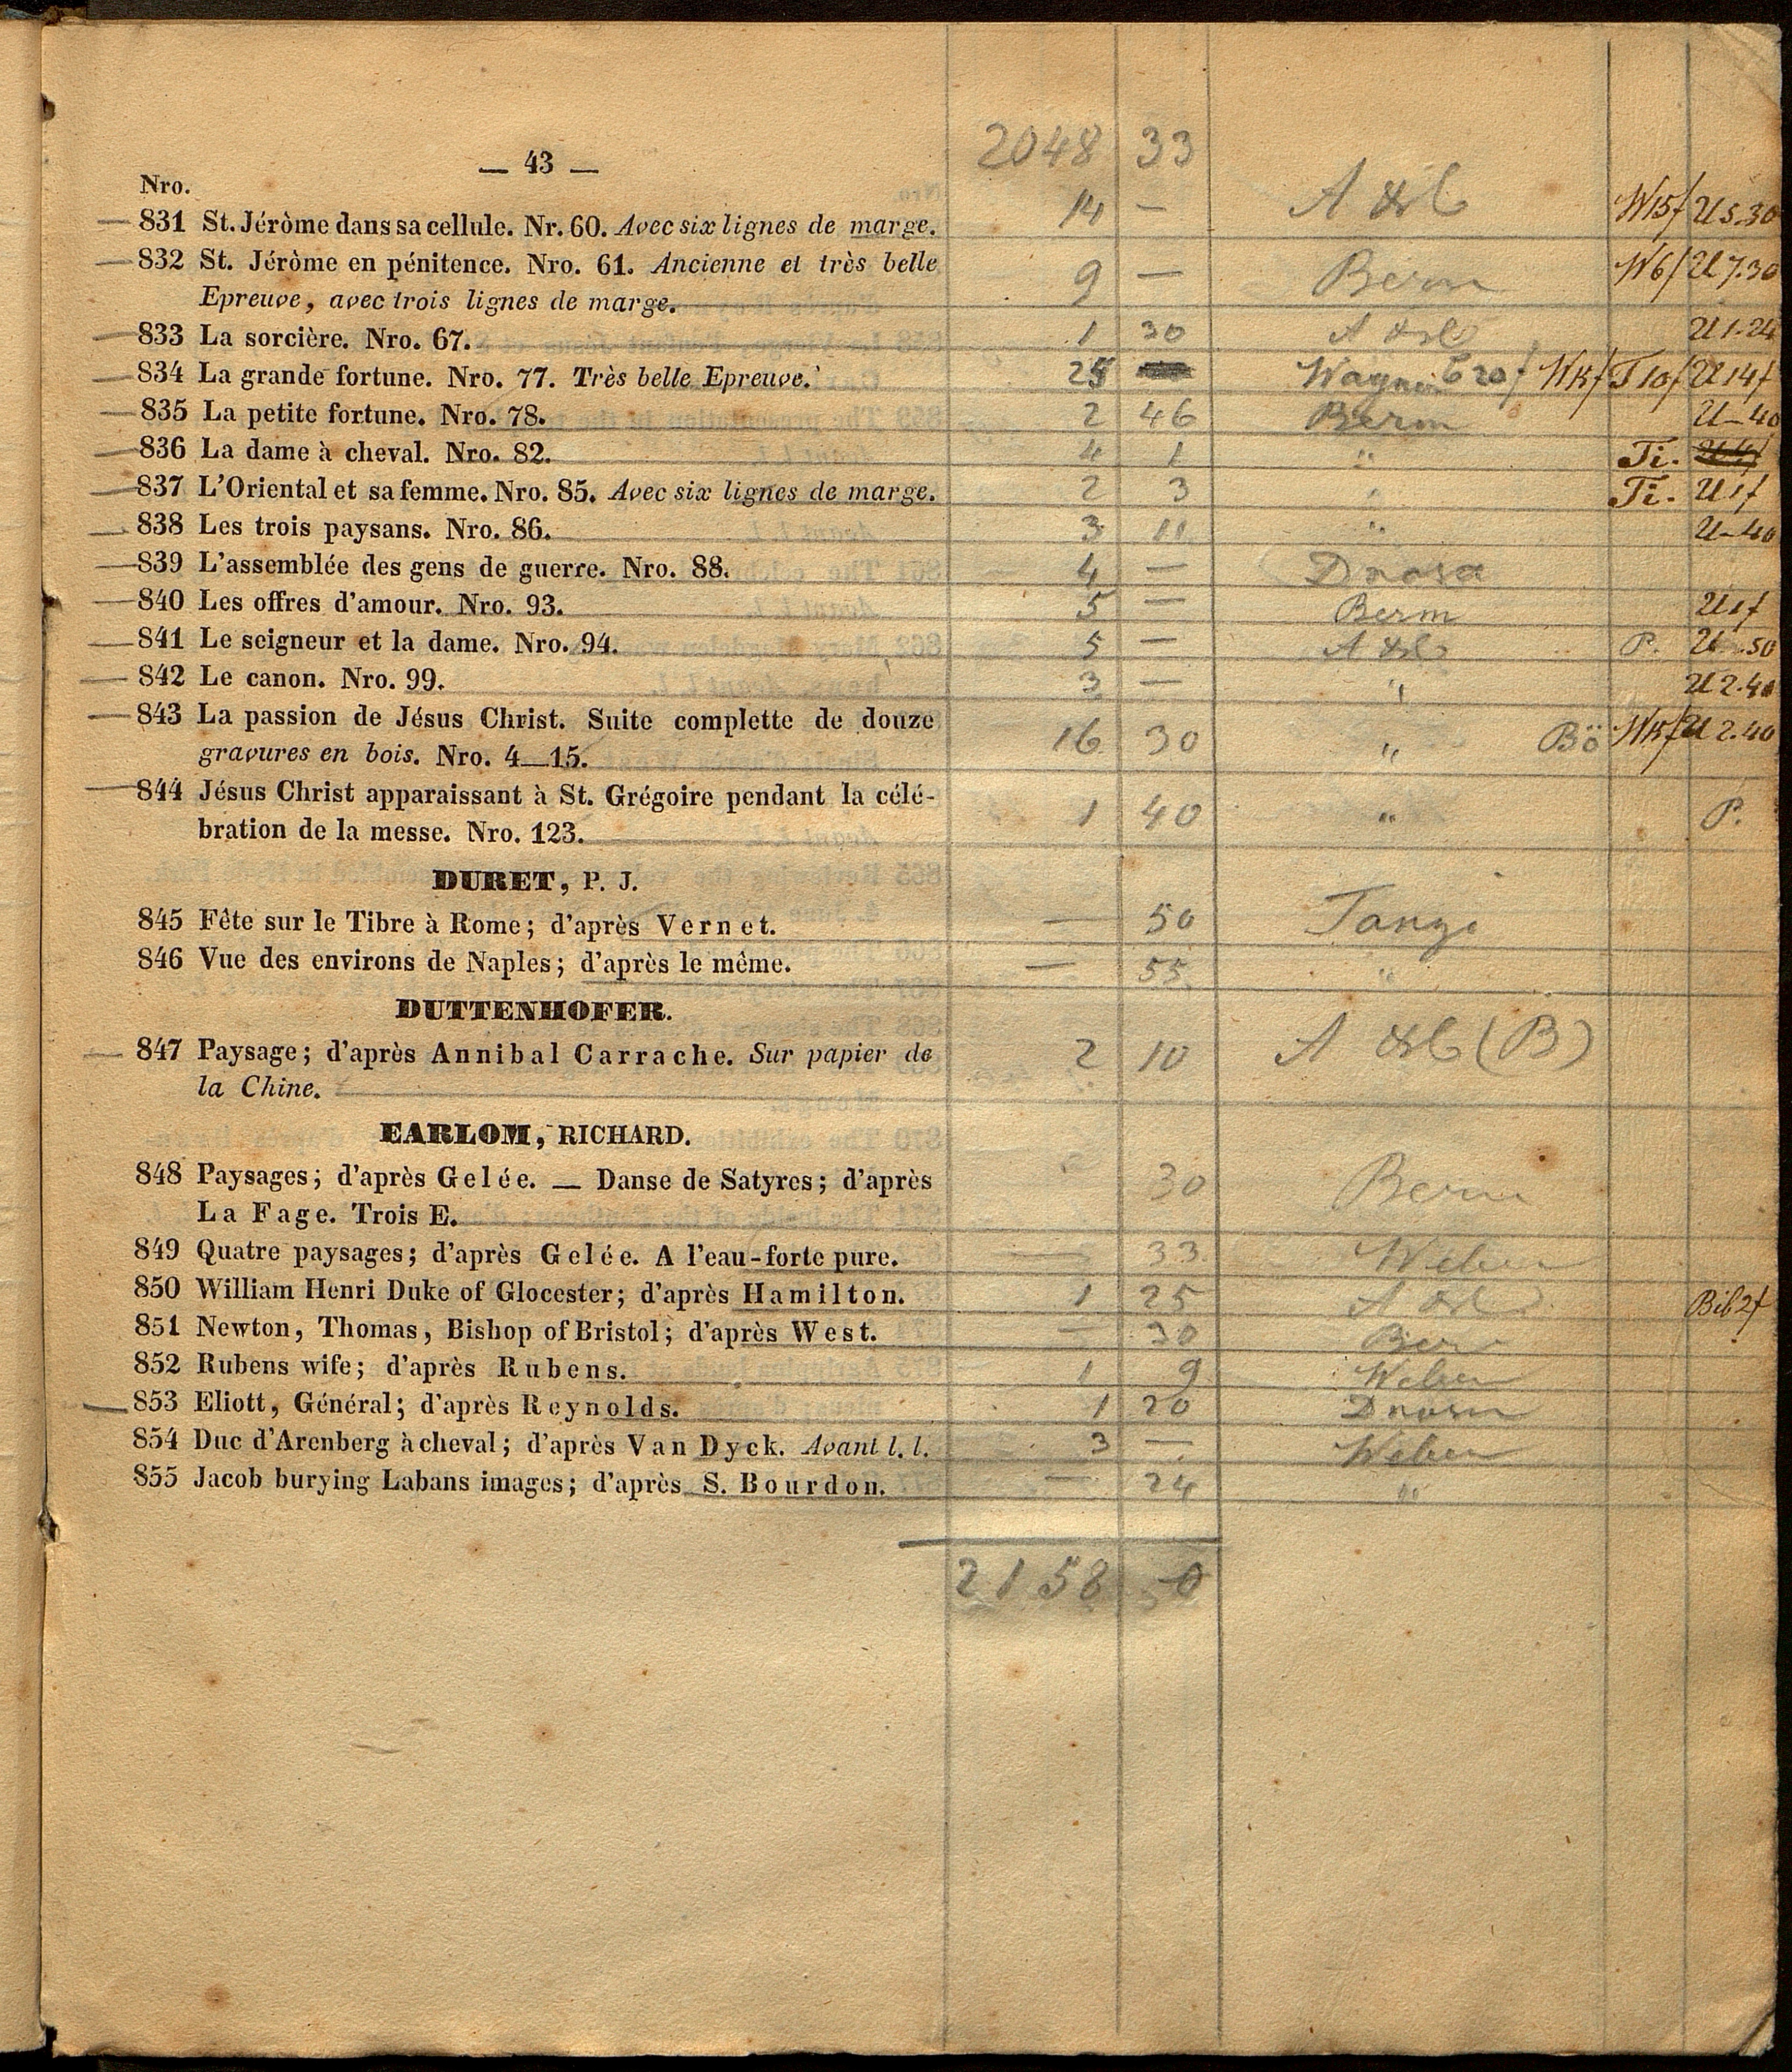 2048 33
— 43 —
Nro.
— 831 St. Jéròme dans sa cellule. Nr. 60. Avec six lignes de marge. 14 — W15f U 5.30
— 832 St. Jéròme en pénitence. Nro. 61. Ancienne et très belle 9 — Berm W6f U 7.30
Epreuve, avec trois lignes de marge.
— 833 La sorcière. Nro. 67. 1 30 U 1.24
— 834 La grande fortune. Nro. 77. Très belle Epreuve. 25 Wagner T10f U14f
— 835 La petite fortune. Nro. 78. 2 46 Berm U—40
— 836 La dame à cheval. Nro. 82. 4 1 " Ti.
— 837 L'Oriental et sa femme. Nro. 85. Avec six lignes de marge. 2 3 " Ti. U1f
— 838 Les trois paysans. Nro. 86. 3 11 " U—40
— 839 L'assemblée des gens de guerre. Nro. 88. 4 —
— 840 Les offres d'amour. Nro. 93. 5 — Berm U1f
— 841 Le seigneur et la dame. Nro. 94. 5 — P. U .50
— 842 Le canon. Nro. 99. 3 — " U 2.40
— 843 La passion de Jésus Christ. Suite complette de douze 16 30 " Bö U 2.40
gravures en bois. Nro. 4—15.
— 844 Jésus Christ apparaissant à St. Grégoire pendant la célé- 1 40 " P.
bration de la messe. Nro. 123.
DURET, P. J.
845 Fête sur le Tibre à Rome; d'après Vernet. — 50
846 Vue des environs de Naples; d'après le même. — 55 "
DUTTENHOFER.
— 847 Paysage; d'après Annibal Carrache. Sur papier de 2 10 (B)
la Chine.
EARLOM, RICHARD.
848 Paysages; d'après Gelée. — Danse de Satyres; d'après 30 Berm
La Fage. Trois E.
849 Quatre paysages; d'après Gelée. A l'eau-forte pure. — 33 Weber
850 William Henri Duke of Glocester; d'après Hamilton. 1 25 Bib 2f
851 Newton, Thomas, Bishop of Bristol; d'après West. — 30 Berm
852 Rubens wife; d'après Rubens. 1 9 Weber
— 853 Eliott, Général; d'après Reynolds. 1 20
854 Duc d'Arenberg à cheval; d'après Van Dyck. Avant l. l. 3 — Weber
855 Jacob burying Labans images; d'après S. Bourdon. — 24 "
2158